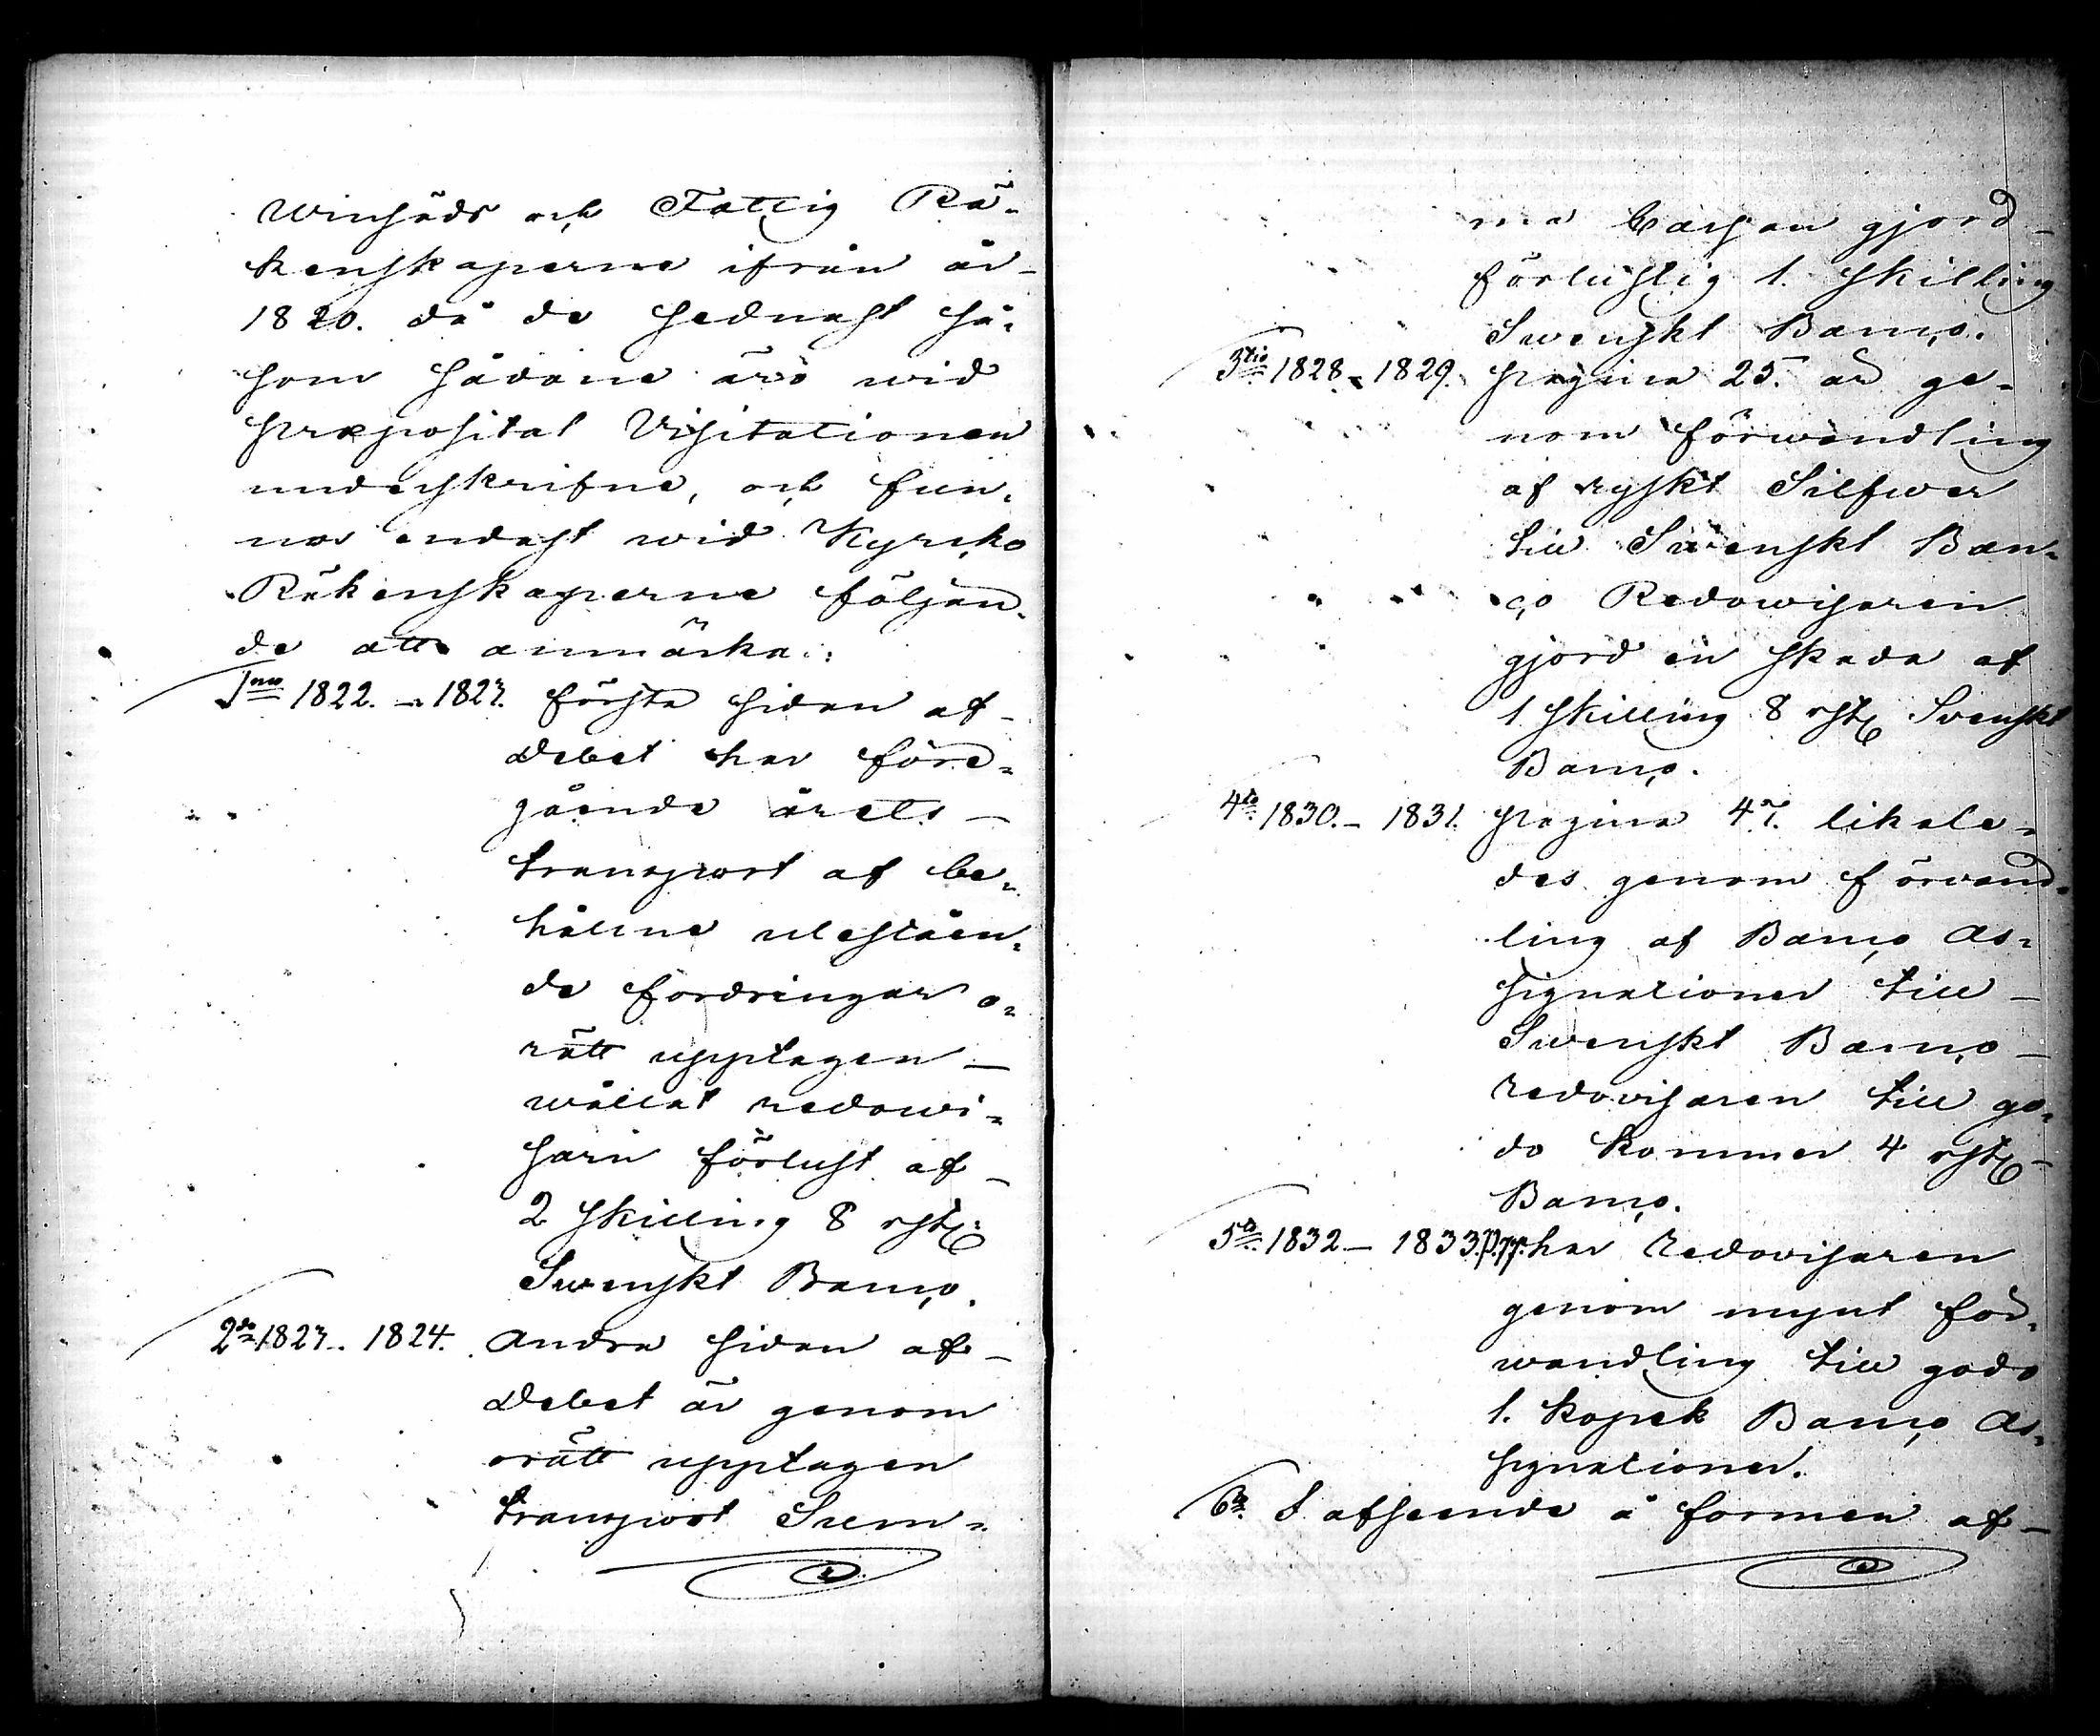 Winsäds och Fattig Rä-
kenskaperne ifrån år-
1820. då de sednast så-
som sådane äro wid
præposital Visitationen
underskrifne, och fun-
nos endast wid Kyrcko
Räkenskaperne följan-
de att anmärka:
1mo 1822. - 1823. första sidan af-
Debet har före-
gående årets-
transport af be-
hållne utestäen-
de fordringar o-
rätt upptagen-
wållat redowi-
sarn förlust af-
2 skilling 8 rst:
Swenskt Banço.
2do 1823. 1824. Andra sidan af-
Debet är genom
orätt upptagen
transport Sum-
ma Cassan gjord-
förlustig 1. skilling
Swenskt Banço.
3tio 1828. 1829. pagina 25. är ge-
nom förwandling
af ryskt Silfwer
till Swenskt Ban-
ço Redowisaren
gjord en skada af
1 skilling 8 rst: Svenskt
Banço.
4to 1830. - 1831. pagina 43. likale-
des genom förvand-
ling af Banço As-
signationer till-
Swenskt Banço-
redovisaren till go-
do kommer 4 rst:-
Banço.
5to 1832 - 1833. har redovisaren
genom mynt för-
wandling till godo
1. kopek Banço As-
signationer.
6to I afseende å formen af-